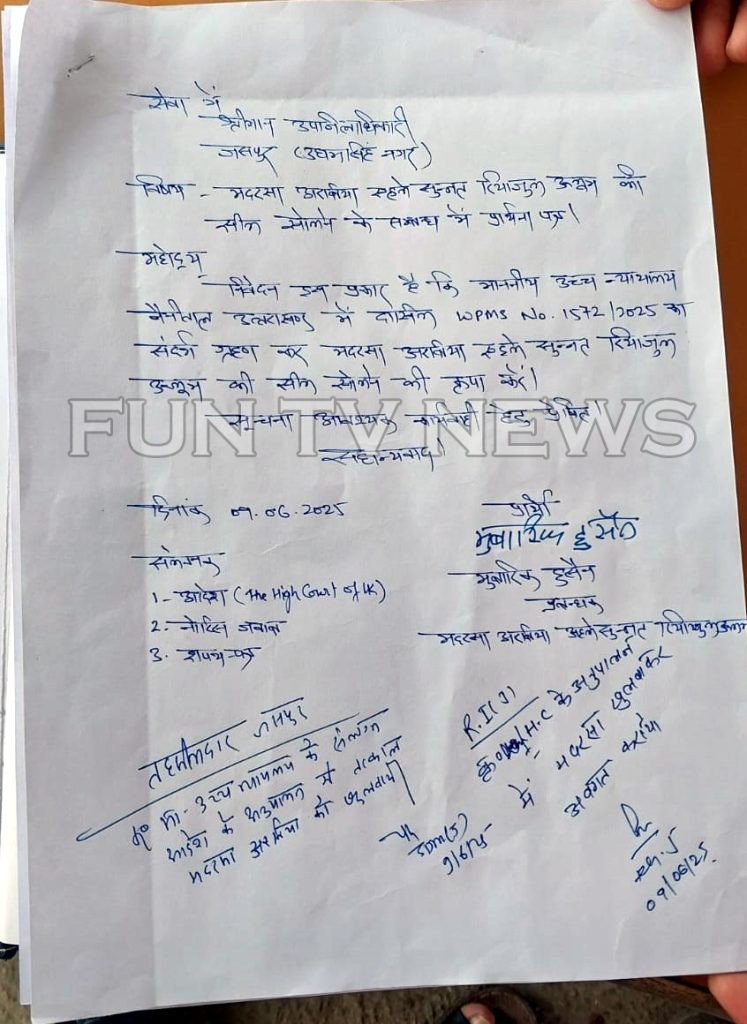 सेवा में
श्रीमान उपजिलाधिकारी
जसपुर (उधमसिंह नगर)
विषय - मदरसा अरबिया अहले सुन्नत रियाजुल उलूम की
सील खोलने के सम्बन्ध में प्रार्थना पत्र।
महोदय,
निवेदन इस प्रकार है कि माननीय उच्च न्यायालय
नैनीताल उत्तराखण्ड में दाखिल WPMS No. 1572/2025 का
संदर्भ ग्रहण कर मदरसा अरबिया अहले सुन्नत रियाजुल
उलूम की सील खोलने की कृपा करें।
FUN TV NEWS
सूचना आवश्यक कार्यवाही हेतु प्रेषित।
सधन्यवाद।
दिनांक 09.06.2025
प्रार्थी
मुबारिक हुसैन
मुबारिक हुसैन
प्रबन्धक
मदरसा अरबिया अहले सुन्नत रियाजुल उलूम
संलग्नक
1- आदेश (The High Court of UK)
2- नोटिस जवाब
3. शपथ-पत्र
तहसीलदार जसपुर
मा० उच्च न्यायालय के संलग्न
आदेश के अनुपालन में तत्काल
मदरसा अरबिया को खुलवायें
SDM(J)
9/6/25
R.I(J)
कृ० H.C के अनुपालन
में मदरसा खुलवाकर
अवगत कराये
09/06/25